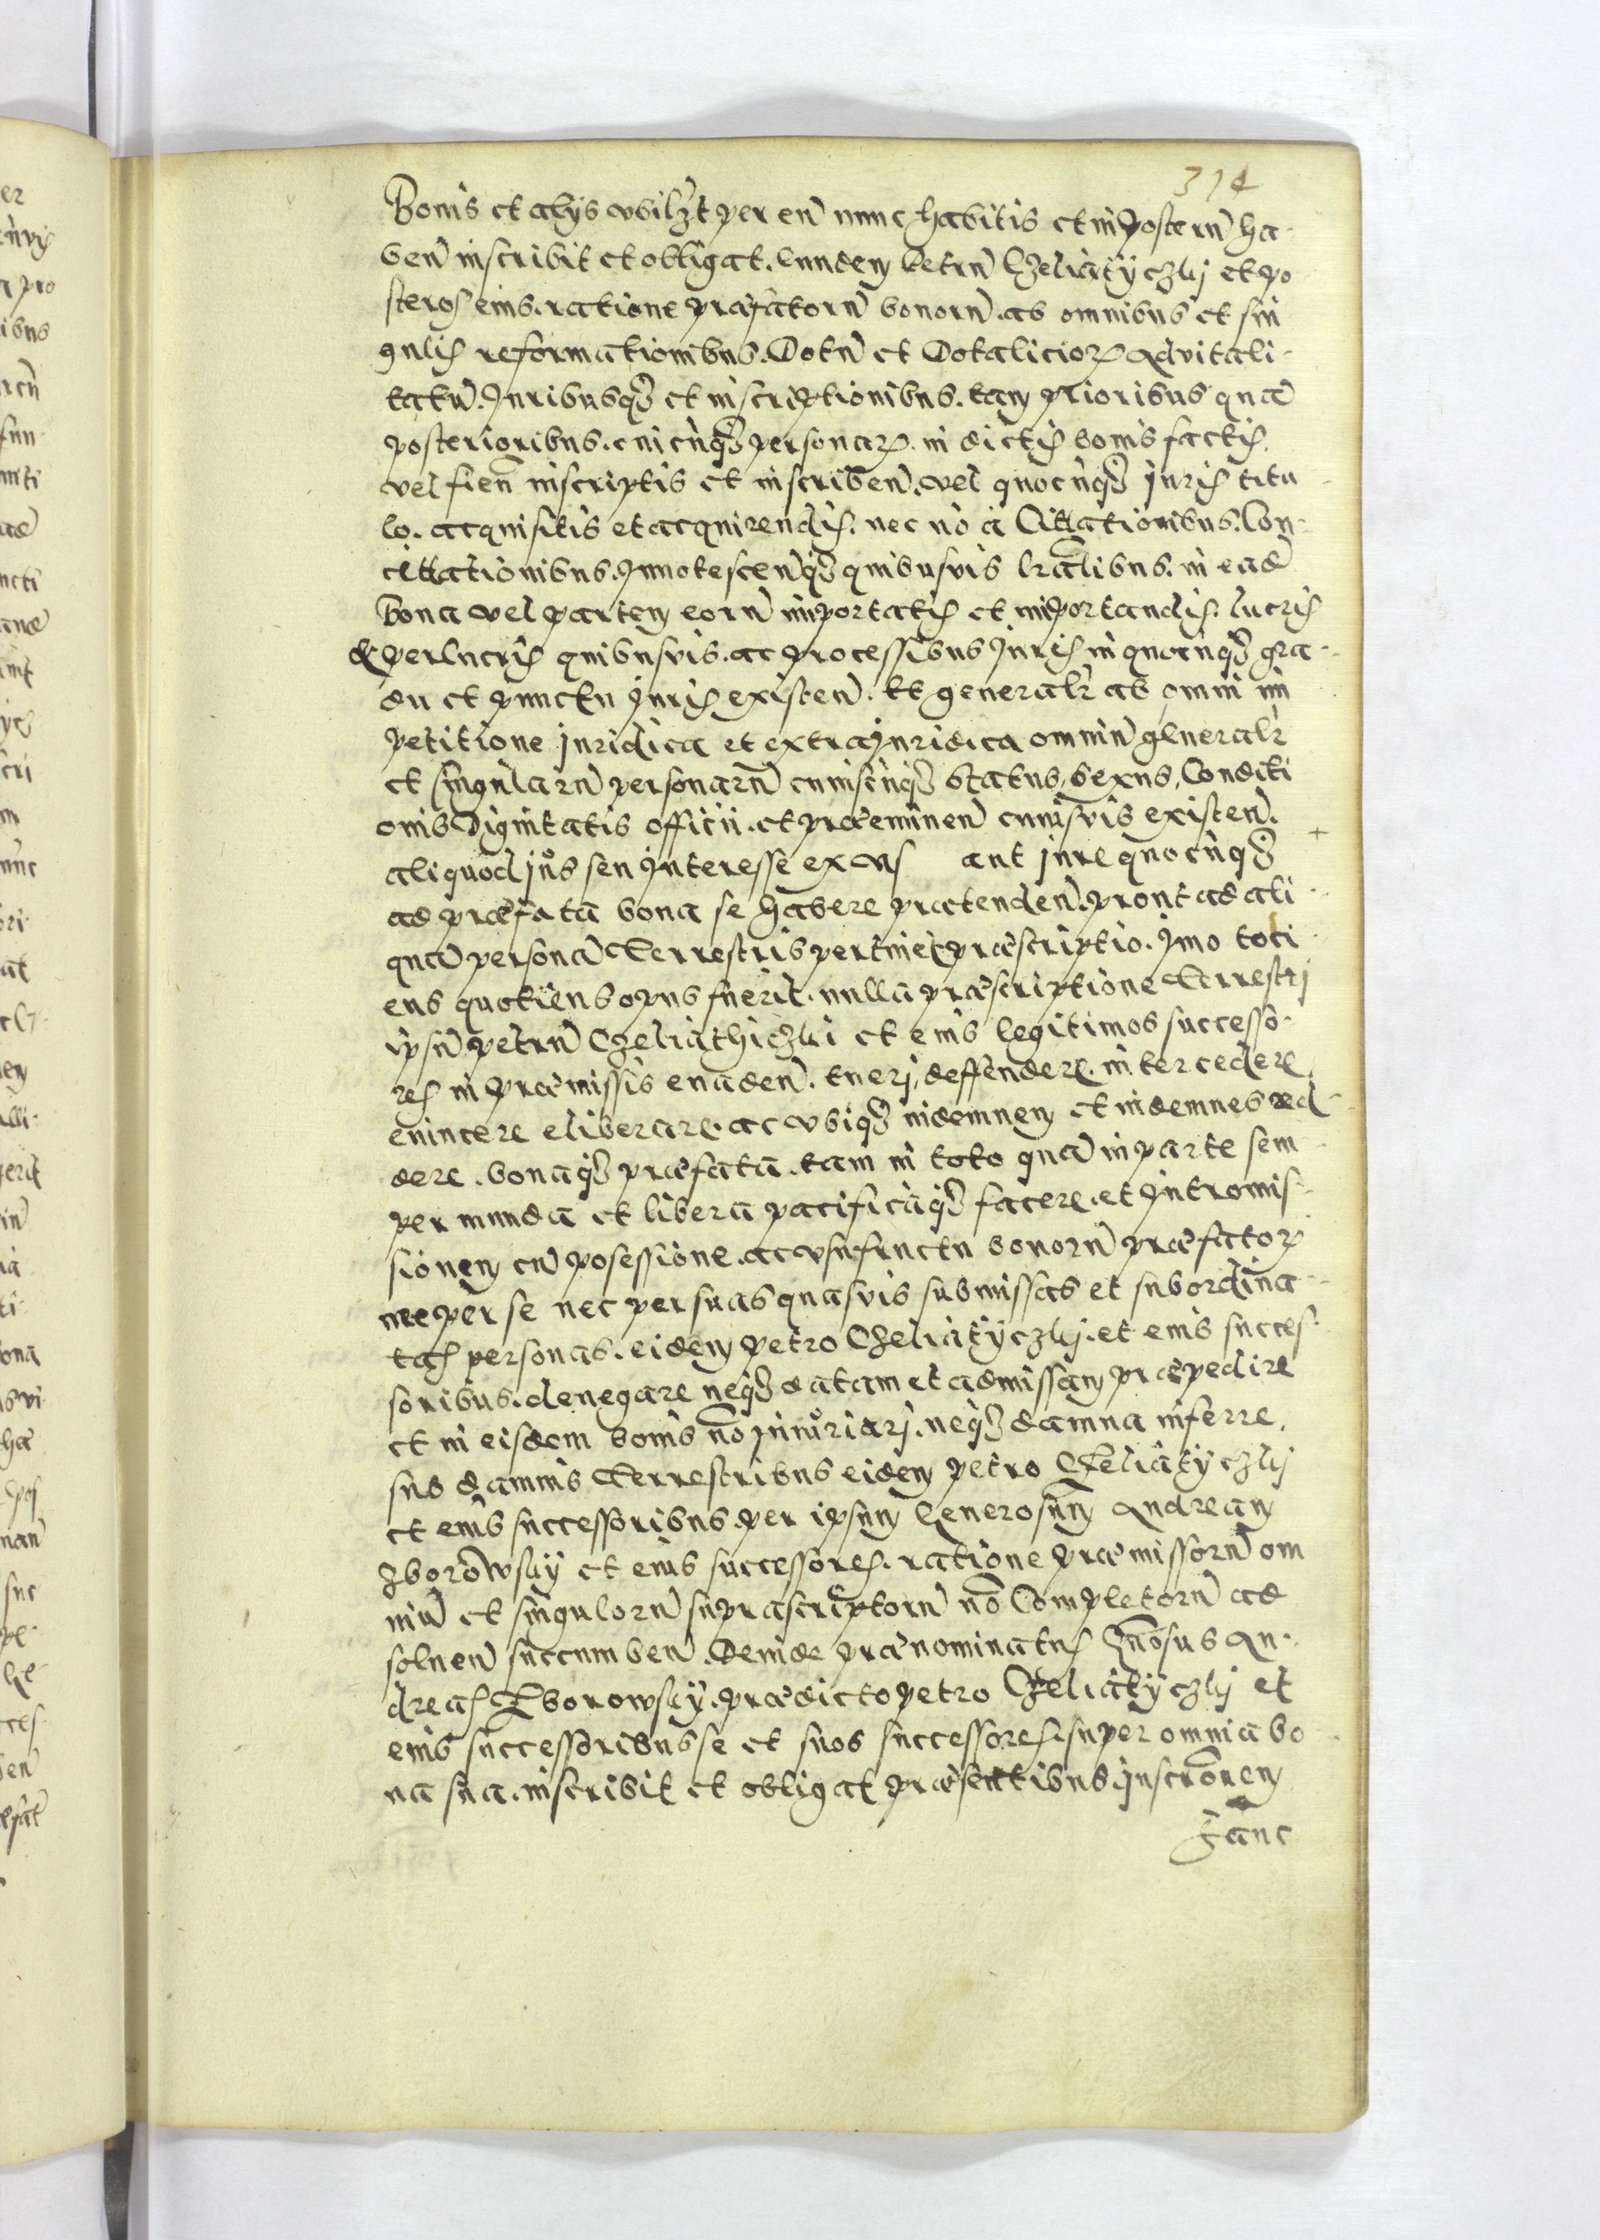 314
Bonis et alijs vbilzt per eñ nunc habitis et in posterũ ha-
beñ inscribit et obligat. Eundem Petrũ Czeliatyczkj et po
steros eius. ratione præfatorũ bonorũ. ab omnibus et sin
gulis reformationibus. Dotũ et Dotalicioꝝ Aduitali-
tatũ. Juribusqȝ et inscriptionibus. tam prioribus quã
posterioribus. cuicũqȝ personaꝝ. in dictis bonis factis.
vel fieñ inscriptis et inscribeñ. vel quocũqȝ juris titu
lo. acquisitis et acquirendis. nec nõ à Cittationibus. Con-
cittationibus. Innotesceñqȝ quibusvis lr̃alibus. in eadẽ
bona vel partem eorũ importatis et importandis. lucris
& perlucris quibusvis. ac processibus Juris in quocũqȝ gra-
du et punctu juris existeñ. Et generalr̃ ab omni im
petitione juridica et extrajuridica omniũ generalr̃
et singularũ personarũ cuiuscũqȝ Status, Sexus, Conditi
onis Dignitatis officii. et præemineñ cuiusvis existeñ.
aliquod jus seu Interesse ex vs aut jure quocũqȝ +
ad præfata bona se habere prætendeñ. prout ad ali-
quã personã Terrestris pertinet præscriptio. Imo toti
ens quotiens opus fuerit. nulla præscriptione Terrestrj
ipsũ Petrũ Czeliathiczki et eius legitimos successo-
res in præmissis euadeñ. tuerj, deffendere. intercedere,
euincere eliberare. ac vbiqȝ indemnem et indemnes red-
dere. bonaqȝ præfata. tam in toto quã in parte sem
per munda et libera pacificaqȝ facere. et Intromis-
sionem cũ posessione. ac vsufructu bonorũ præfatoꝝ
nec per se nec per suas quasvis submissas et subordina-
tas personas. eidem Petro Czeliatyczkj. et eius succes-
soribus. denegare neqȝ datam et admissam præpedire
et in eisdem bonis nõ iniuriarj. neqȝ damna inferre.
sub damnis Terrestribus eidem Petro Czeliatyczkj
et eius successoribus. per ipsum Generosum Andream
Zborowsky et eius successores. ratione præmissorũ om
niũ et singulorũ suprascriptorũ nõ Completorũ ad
solueñ succumbeñ. Deinde prænominatus Gñosus An-
dreas Zborowsky. prædicto Petro Czeliatyczkj et
eius successoribus se et suos successores. super omnia bo
na sua. inscribit et obligat præsentibus. inscrõnem
hanc